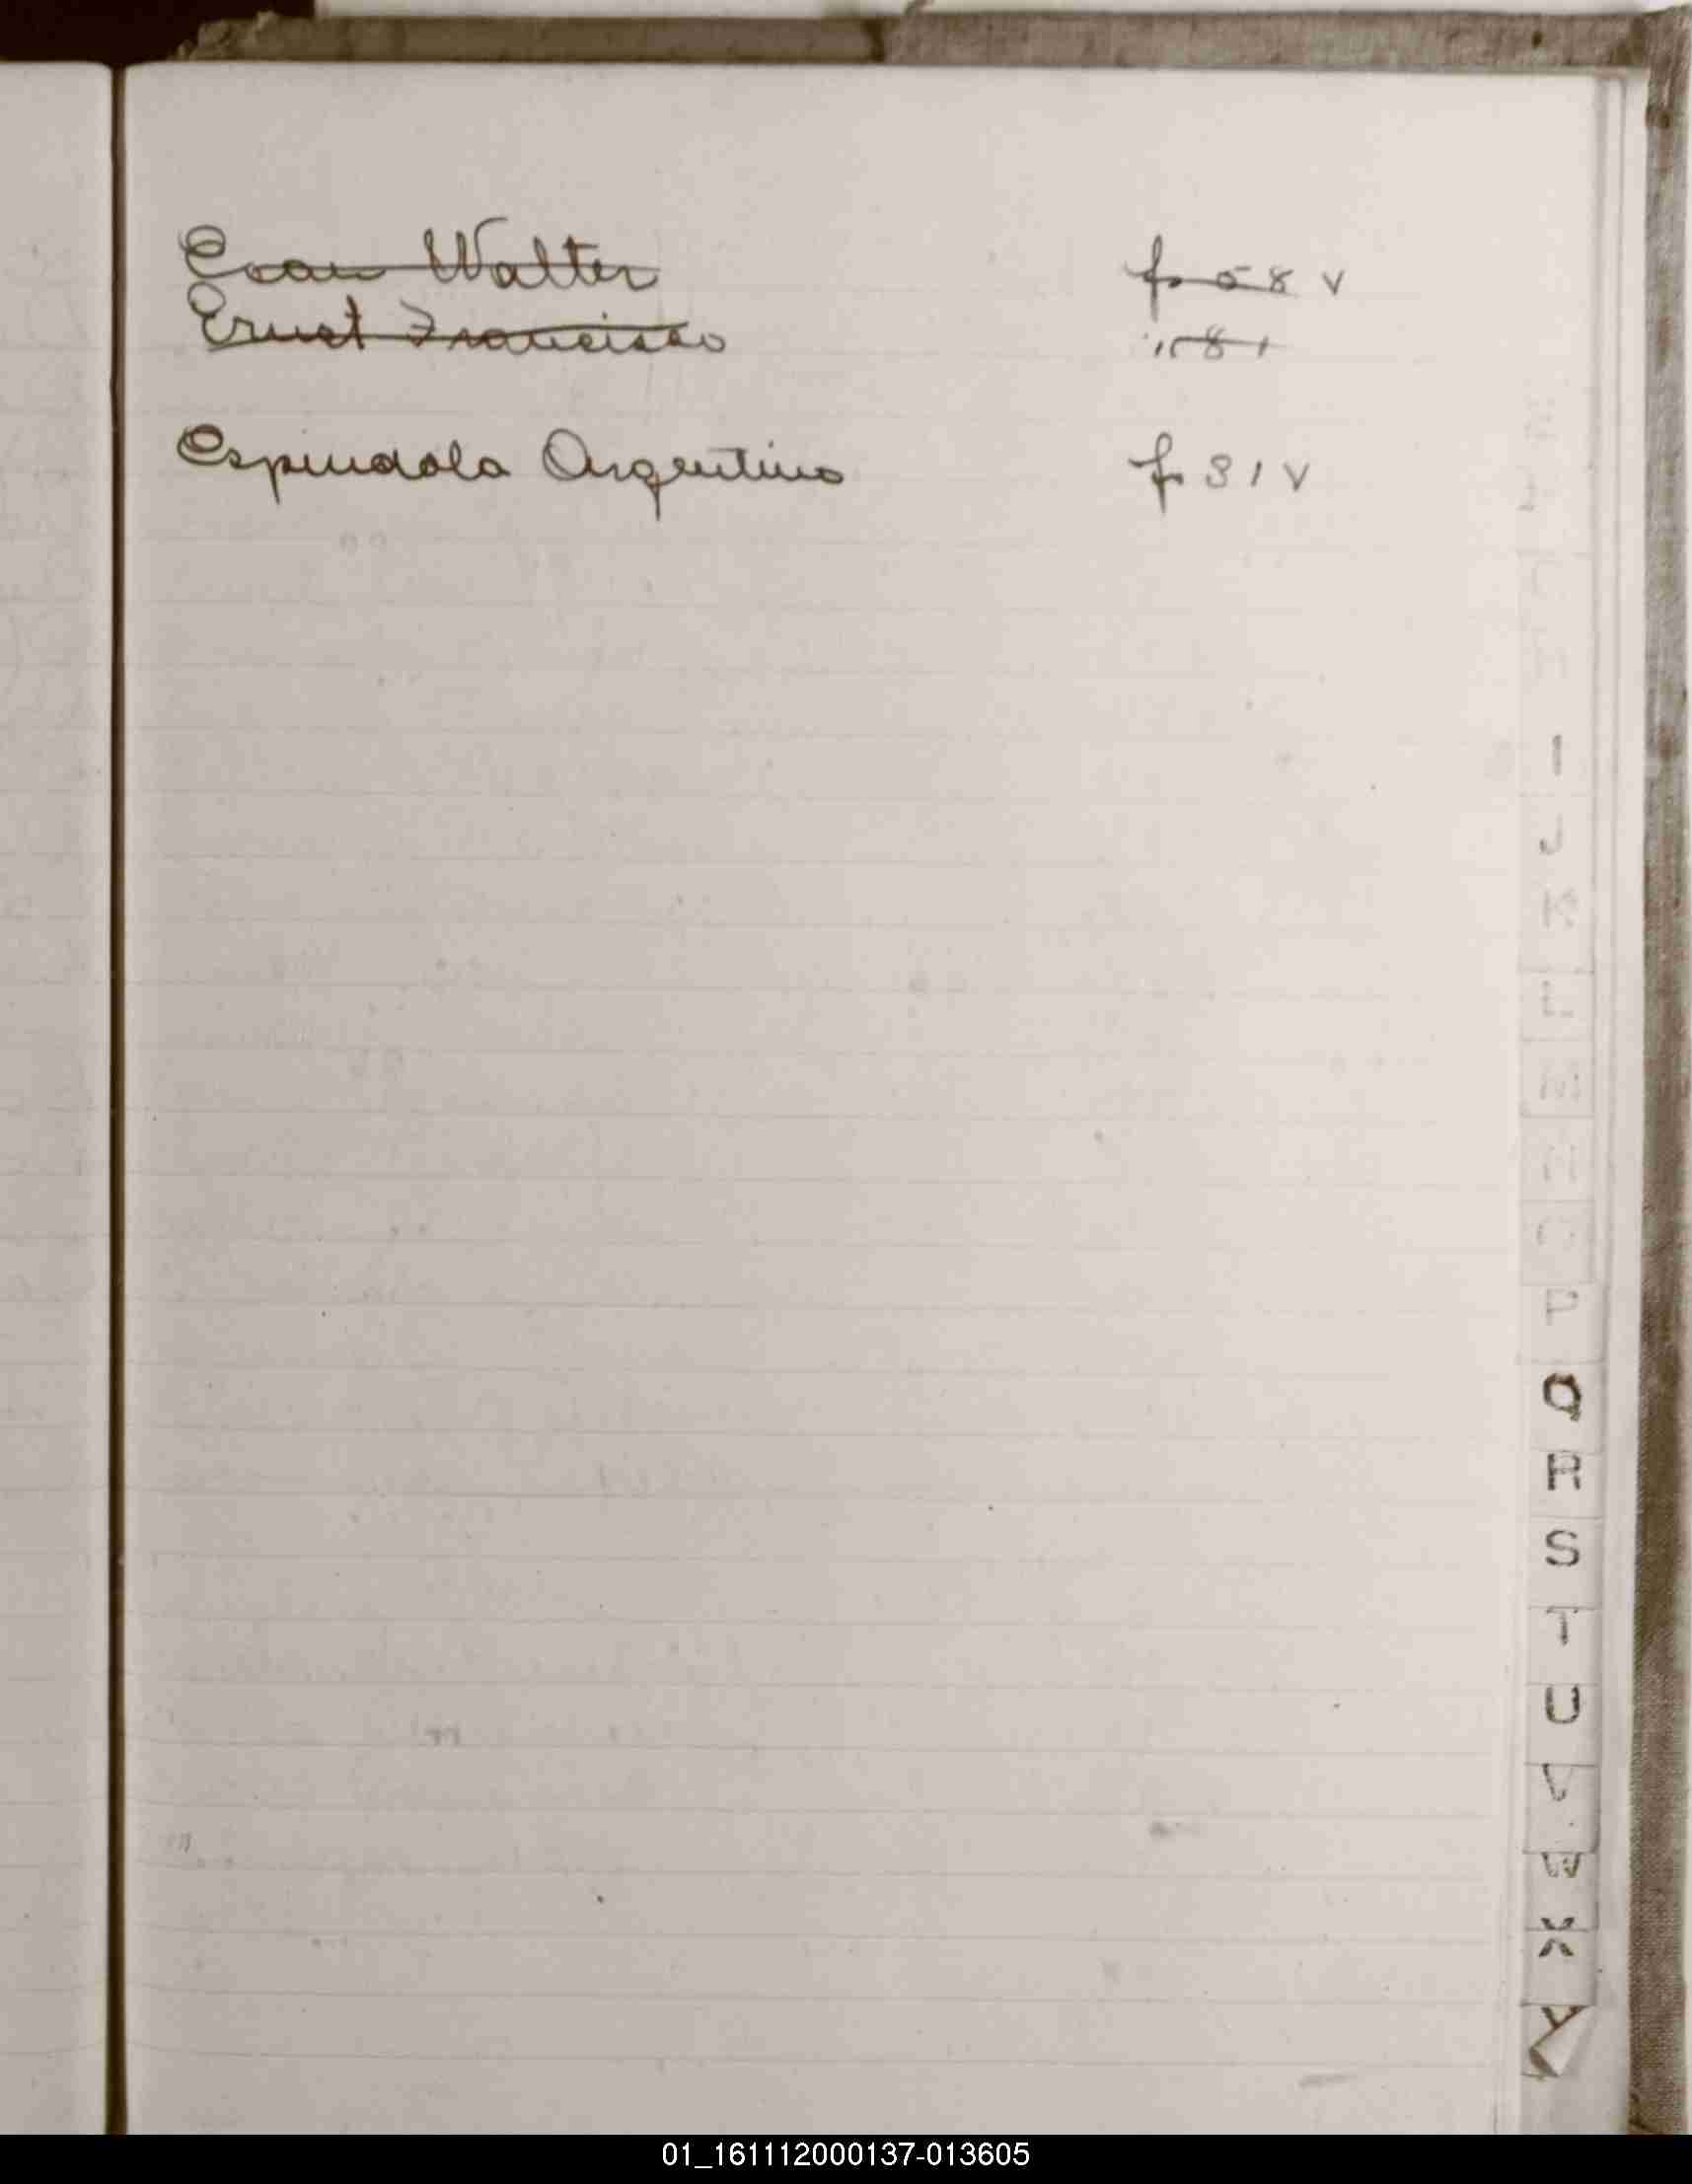 Evan Walter f. 58 v
Ernst Francisco " 81
Espindola Argentino f 81 v
I
J
K
L
M
N
O
P
Q
R
S
T
U
V
W
X
Y
01_161112000137-013605